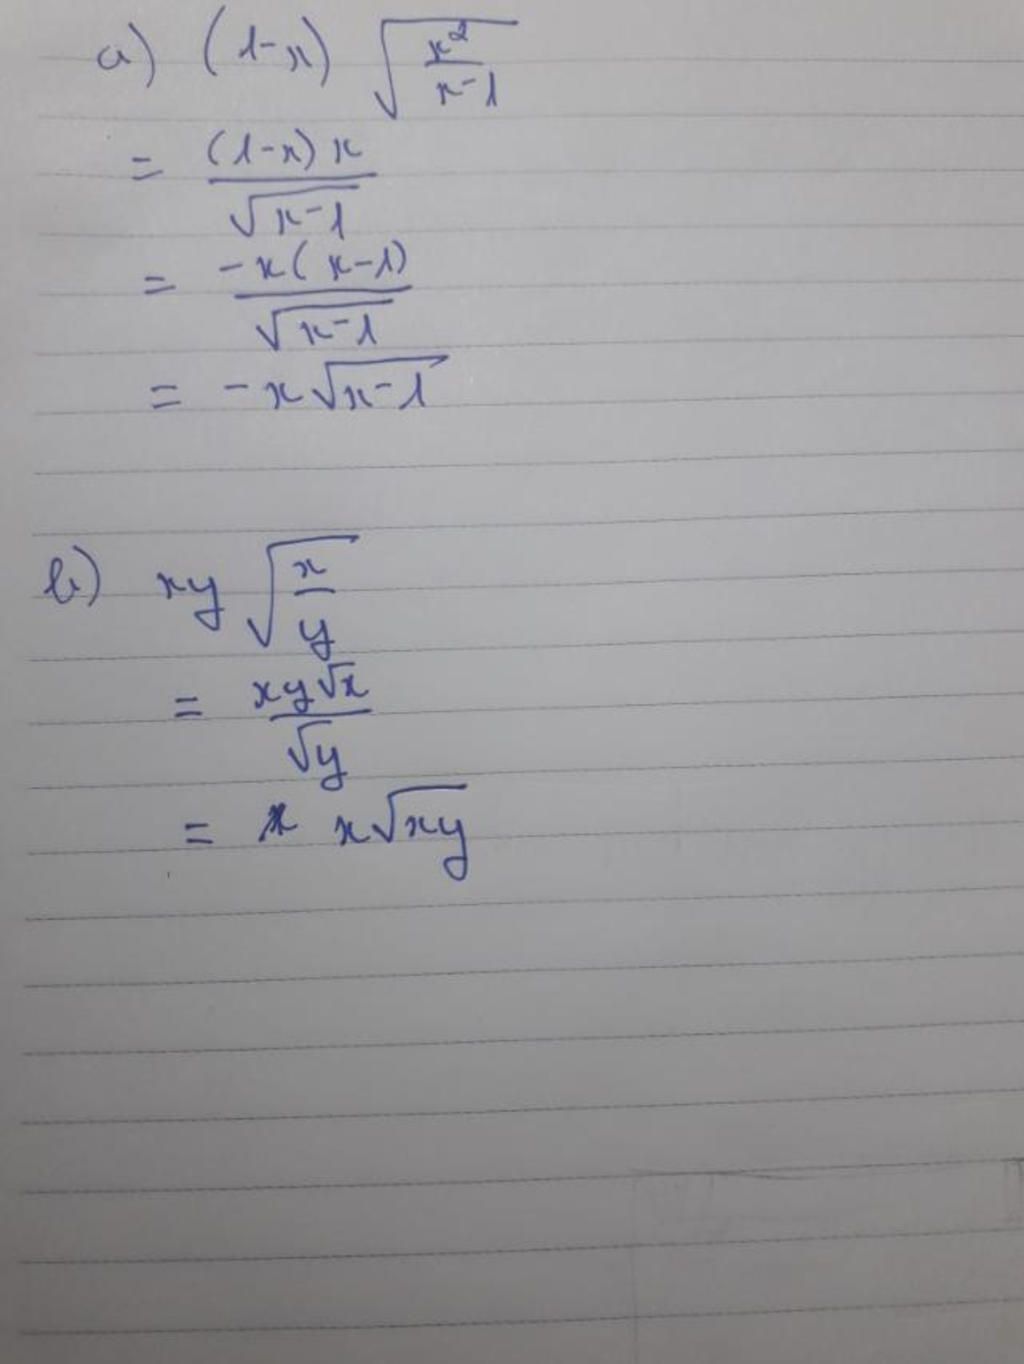 a) (1-x) √(x²/(x-1))
= (1-x)x/√(x-1)
= -x(x-1)/√(x-1)
= -x√(x-1)
b) xy √(x/y)
= xy√x/√y
= x√(xy)